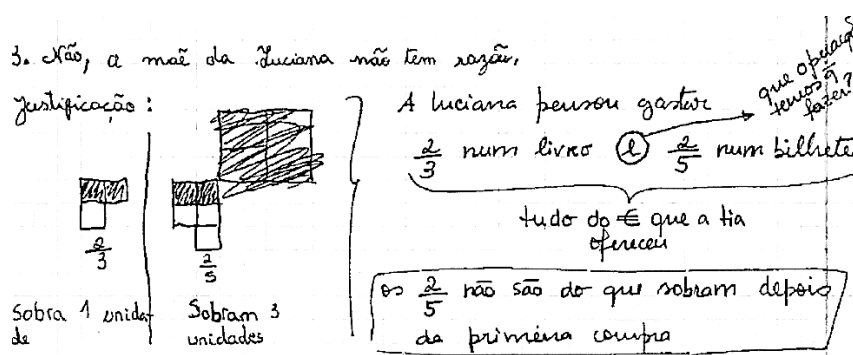 3. Não, a mãe da Luciana não tem razão.
Justificação:
2/3
Sobra 1 unida-
de
2/5
Sobram 3
unidades
A Luciana pensou gastar
2/3 num livro e 2/5 num bilhete
que operação
temos q
fazer?
tudo do € que a tia
ofereceu
os 2/5 não são do que sobram depois
da primeira compra